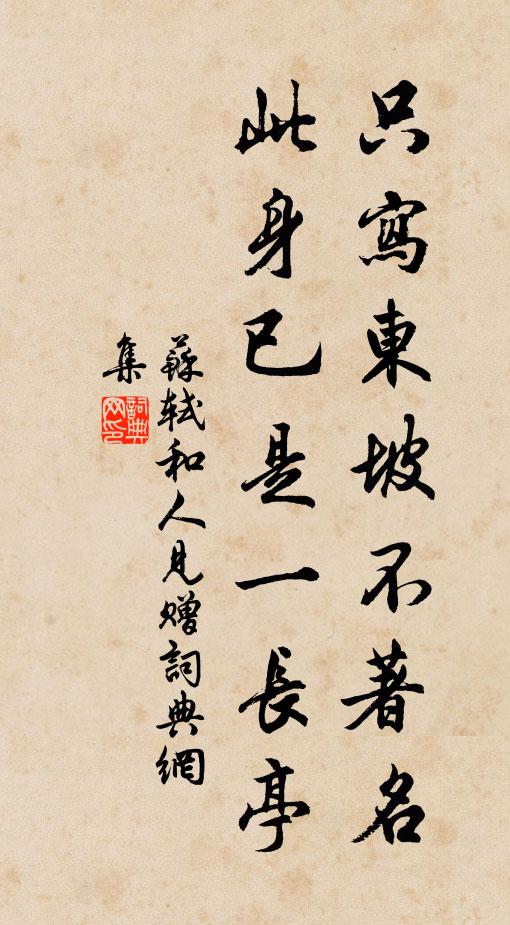 只寫東坡不著名
此身已是一長亭
蘇軾和人見贈詞典網
集
詞典
网印